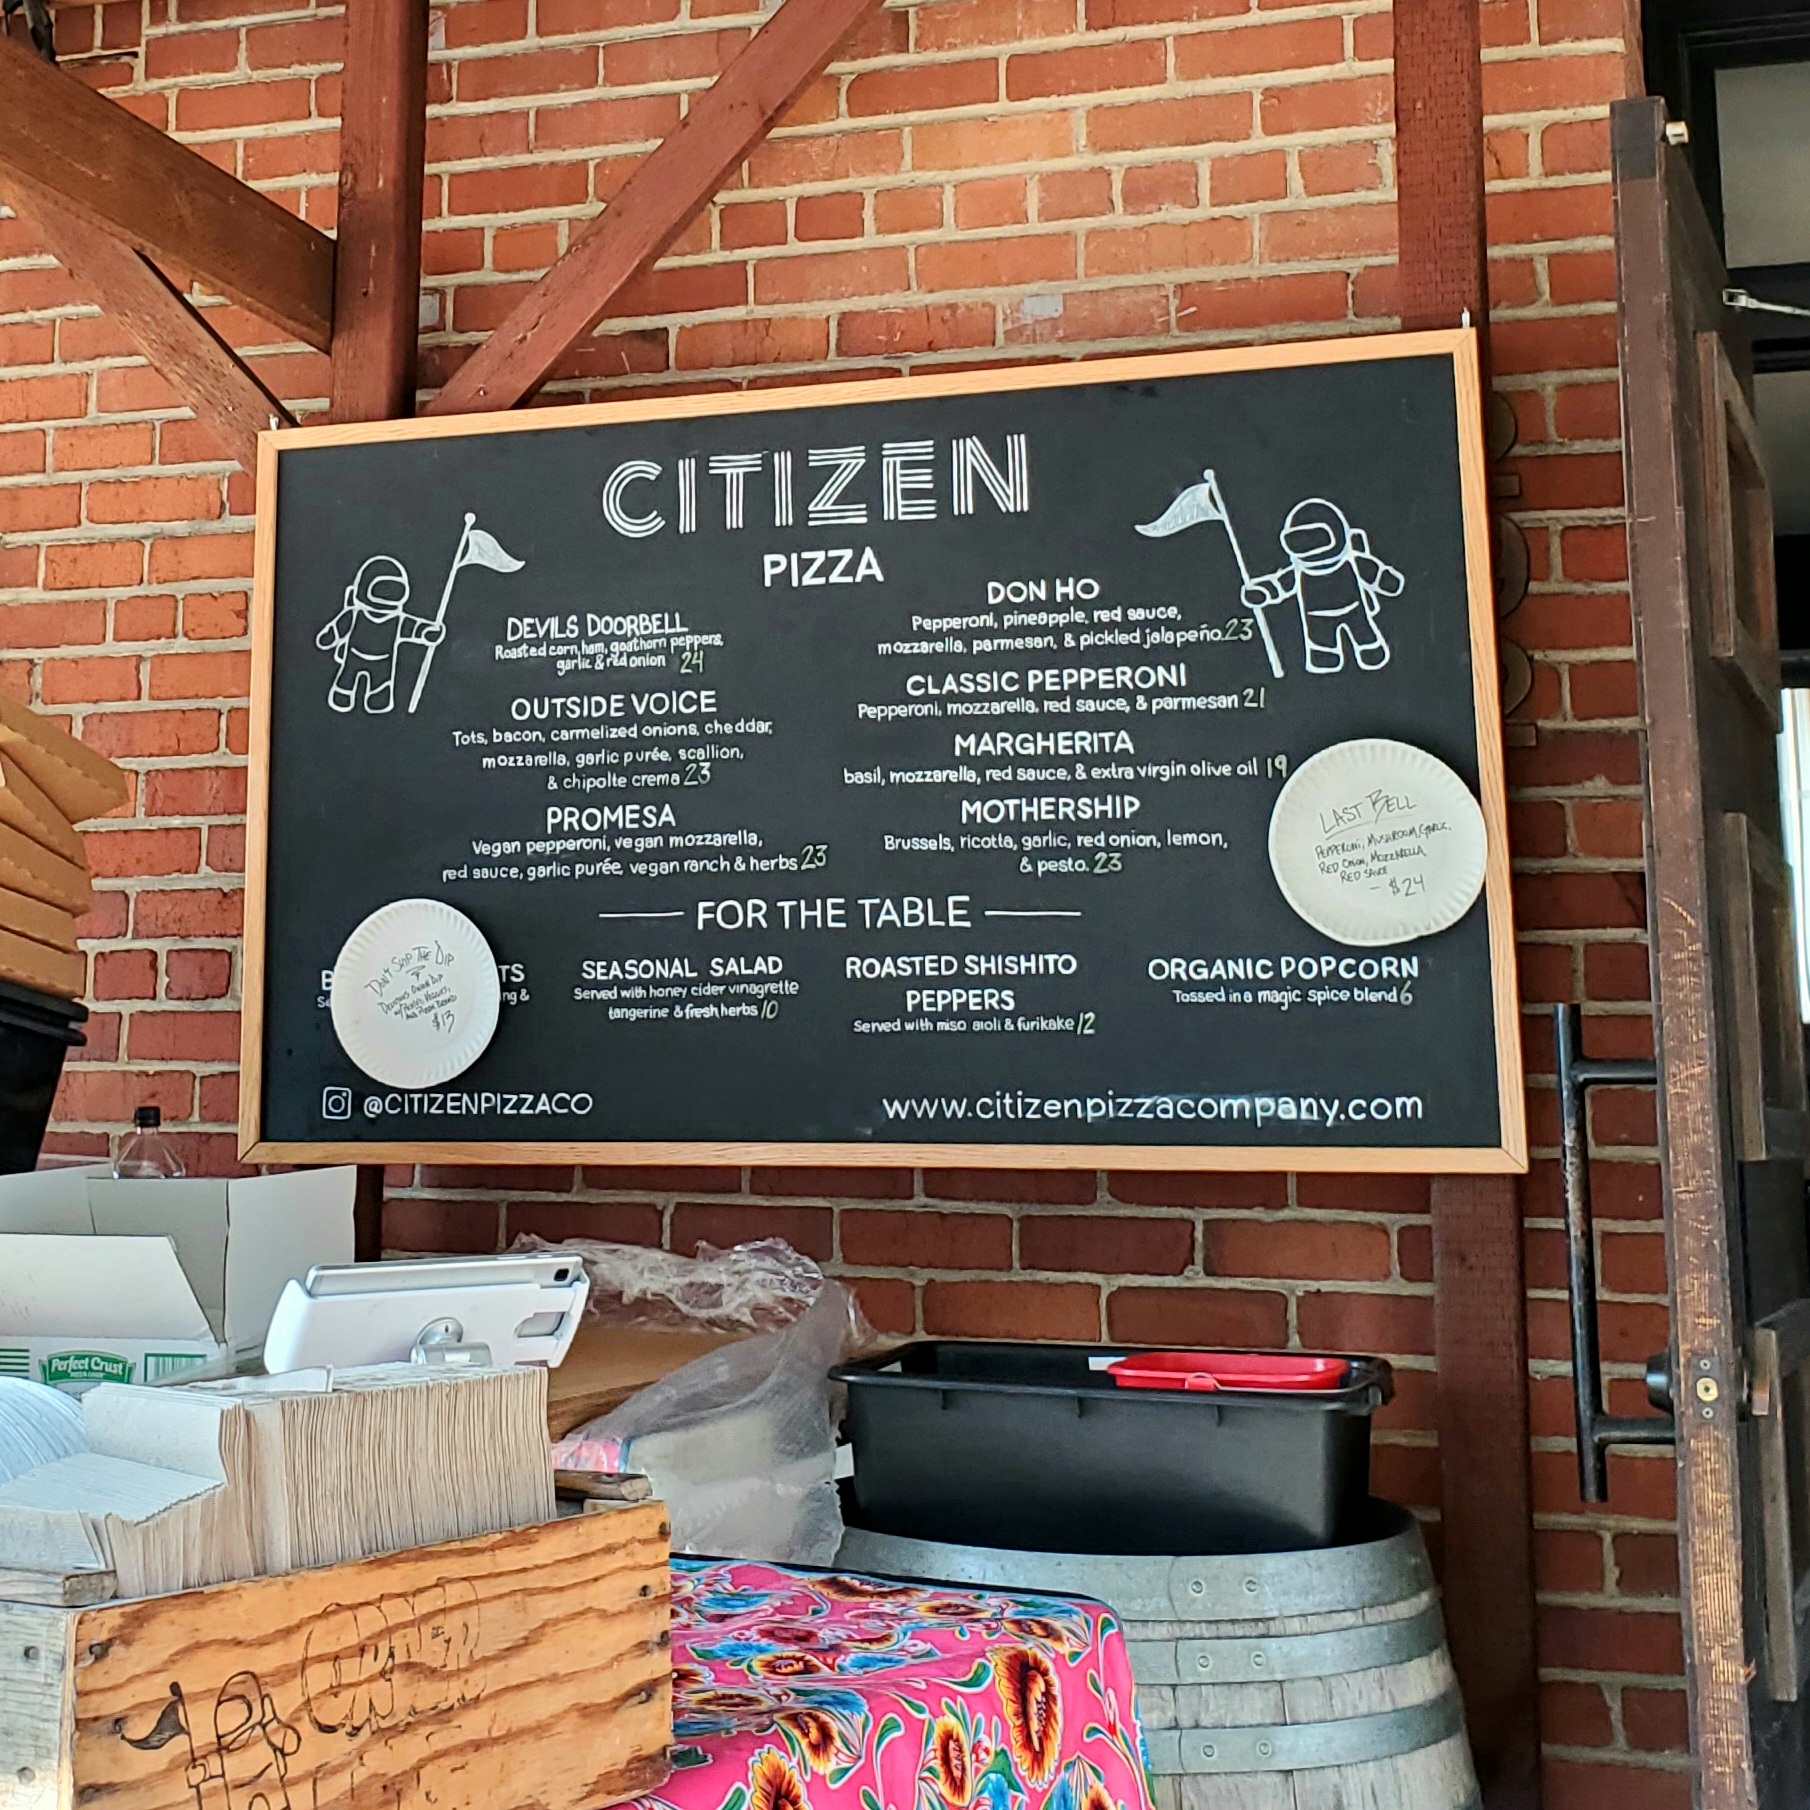 CITIZEN
PIZZA
DEVILS DOORBELL
Roasted corn, ham, goathorn peppers,
garlic & red onion 24
OUTSIDE VOICE
Tots, bacon, carmelized onions, cheddar,
mozzarella, garlic purée, scallion,
& chipolte crema 23
PROMESA
Vegan pepperoni, vegan mozzarella,
red sauce, garlic purée, vegan ranch & herbs 23
DON HO
Pepperoni, pineapple, red sauce,
mozzarella, parmesan, & pickled jalapeño. 23
CLASSIC PEPPERONI
Pepperoni, mozzarella, red sauce, & parmesan 21
MARGHERITA
basil, mozzarella, red sauce, & extra virgin olive oil 19
MOTHERSHIP
Brussels, ricotta, garlic, red onion, lemon,
& pesto. 23
LAST BELL
PEPPERONI, MUSHROOM, GARLIC,
RED ONION, MOZZARELLA
RED SAUCE
- $24
FOR THE TABLE
DON'T SKIP THE DIP
DELICIOUS ONION DIP
W/ FRESH VEGGIES,
AND PIZZA BREAD
$13
B TS
Se ng &
SEASONAL SALAD
Served with honey cider vinagrette
tangerine & fresh herbs 10
ROASTED SHISHITO
PEPPERS
Served with miso aioli & furikake 12
ORGANIC POPCORN
Tossed in a magic spice blend 6
@CITIZENPIZZACO
www.citizenpizzacompany.com
Perfect Crust